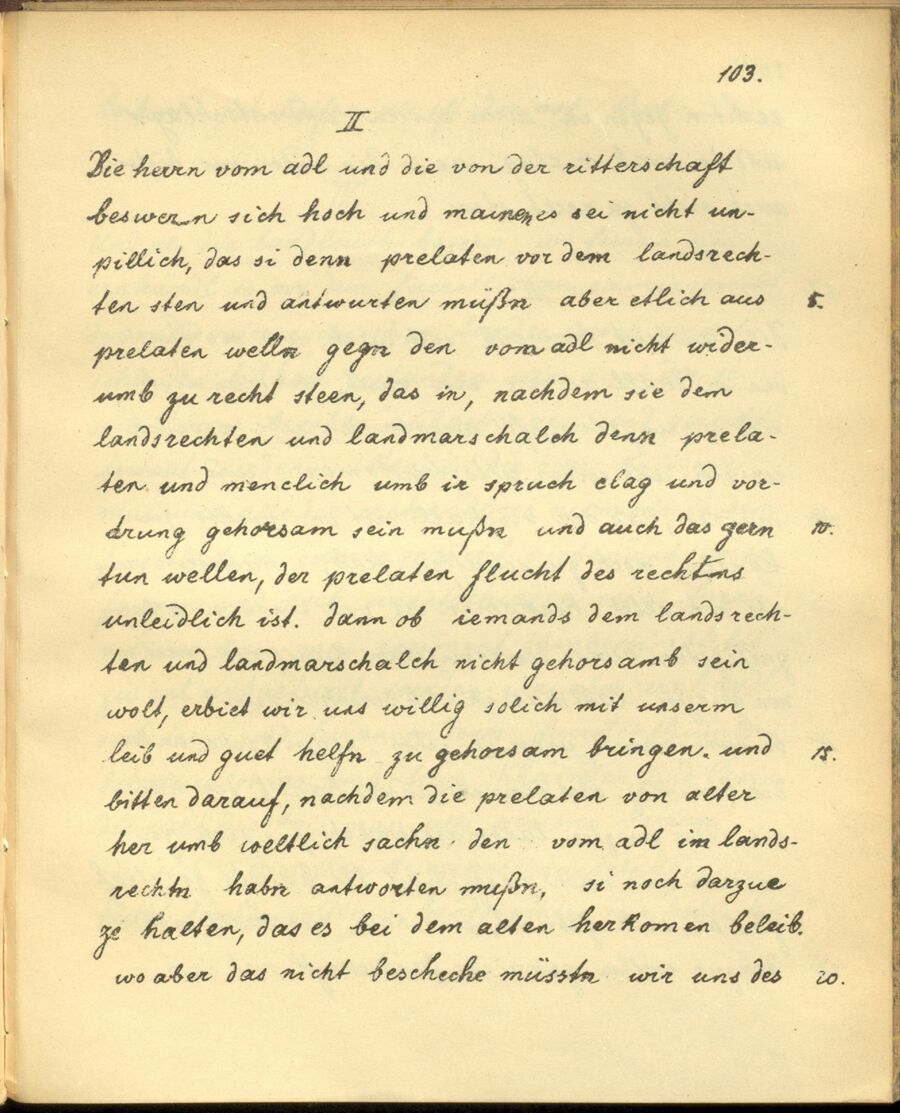 103.
II
Die herrn vom adl und die von der ritterschaft
beswern sich hoch und mainen es sei nicht un-
pillich, das si denn prelaten vor dem landsrech-
ten sten und antwurten müßn aber etlich aus 5.
prelaten welln gegn den vom adl nicht wider-
umb zu recht steen, das in, nachdem sie dem
landsrechten und landmarschalch denn prela-
ten und menclich umb ir spruch clag und vor-
drung gehorsam sein mußn und auch das gern 10.
tun wellen, der prelaten flucht des rechtens
unleidlich ist. dann ob iemands dem landsrech-
ten und landmarschalch nicht gehorsamb sein
wolt, erbiet wir uns willig solich mit unserm
leib und guet helfn zu gehorsam bringen. und 15.
bitten darauf, nachdem die prelaten von alter
her umb weltlich sachn den vom adl im lands-
rechtn habn antworten mußn, si noch darzue
ze halten, das es bei dem alten herkomen beleib.
wo aber das nicht beschehe müsstn wir uns des 20.